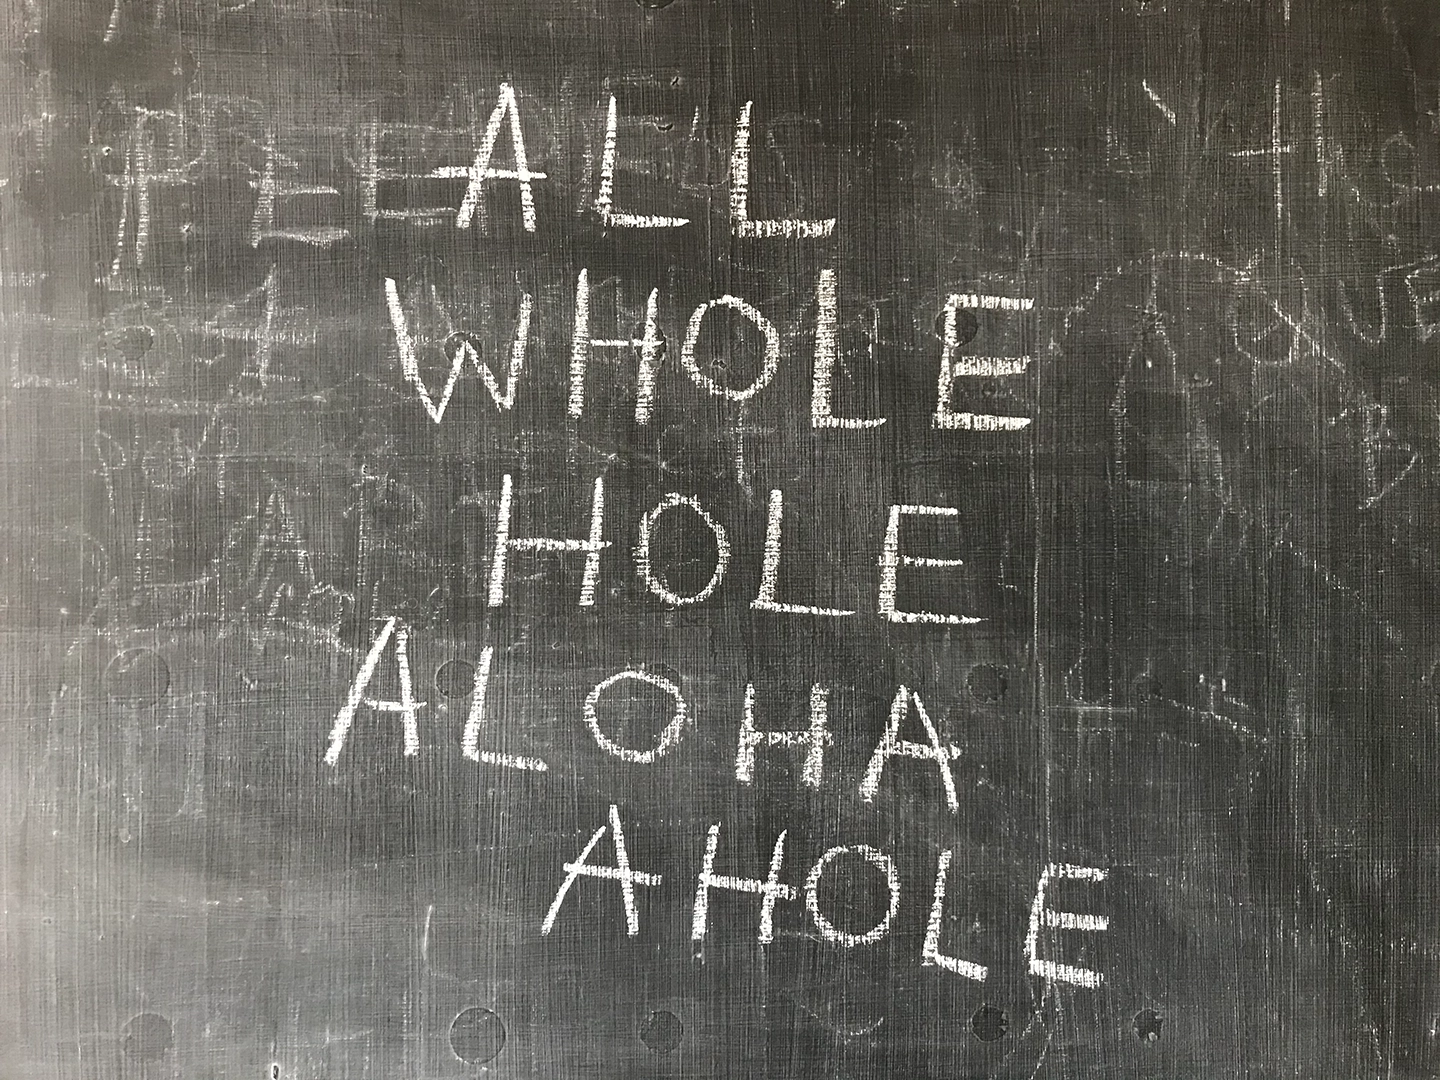 ALL
WHOLE
HOLE
ALOHA
AHOLE